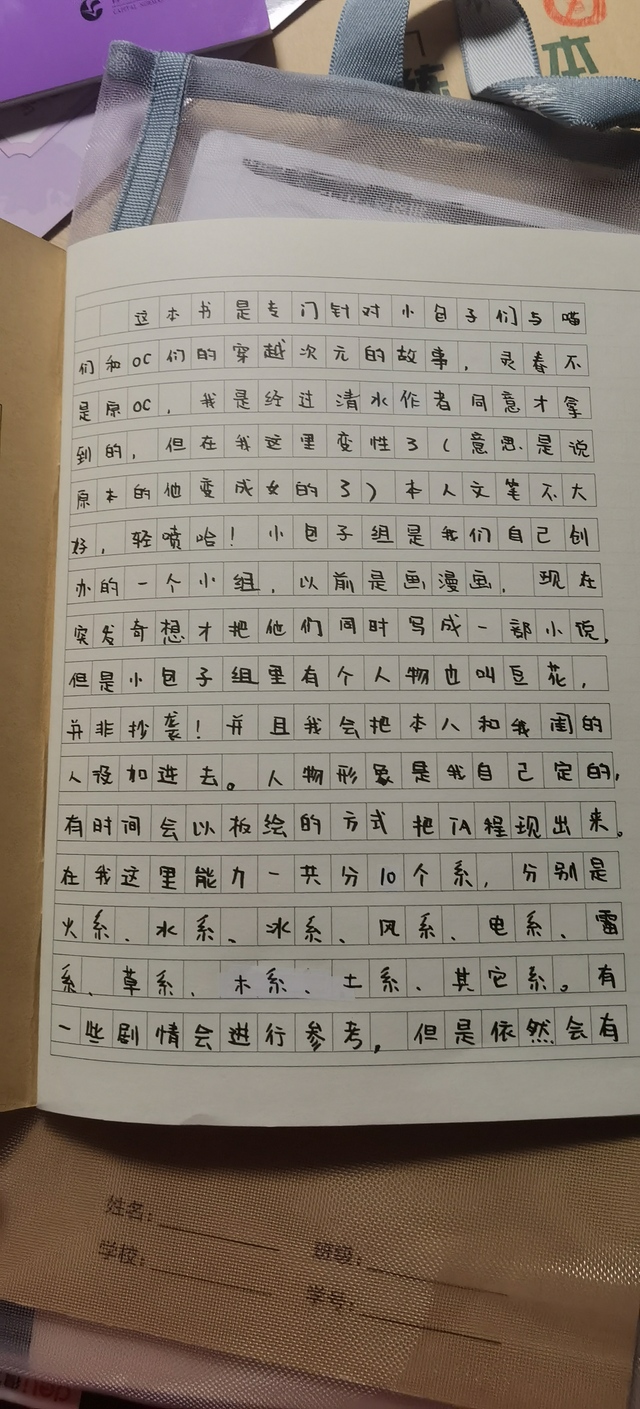 本
这本书是专门针对小包子们与喵
们和OC们的穿越次元的故事，灵春不
是原OC，我是经过清水作者同意才拿
到的，但在我这里变性了（意思是说
原本的他变成女的了）本人文笔不大
好，轻喷哈！小包子组是我们自己创
办的一个小组，以前是画漫画，现在
突发奇想才把他们同时写成一部小说，
但是小包子组里有个人物也叫豆花，
并非抄袭！并且我会把本人和我闺的
人设加进去。人物形象是我自己定的，
有时间会以板绘的方式把TA程现出来。
在我这里能力一共分10个系，分别是
火系、水系、冰系、风系、电系、雷
系、草系、木系、土系、其它系。有
一些剧情会进行参考，但是依然会有
姓名：
班级：
学校：
学号：